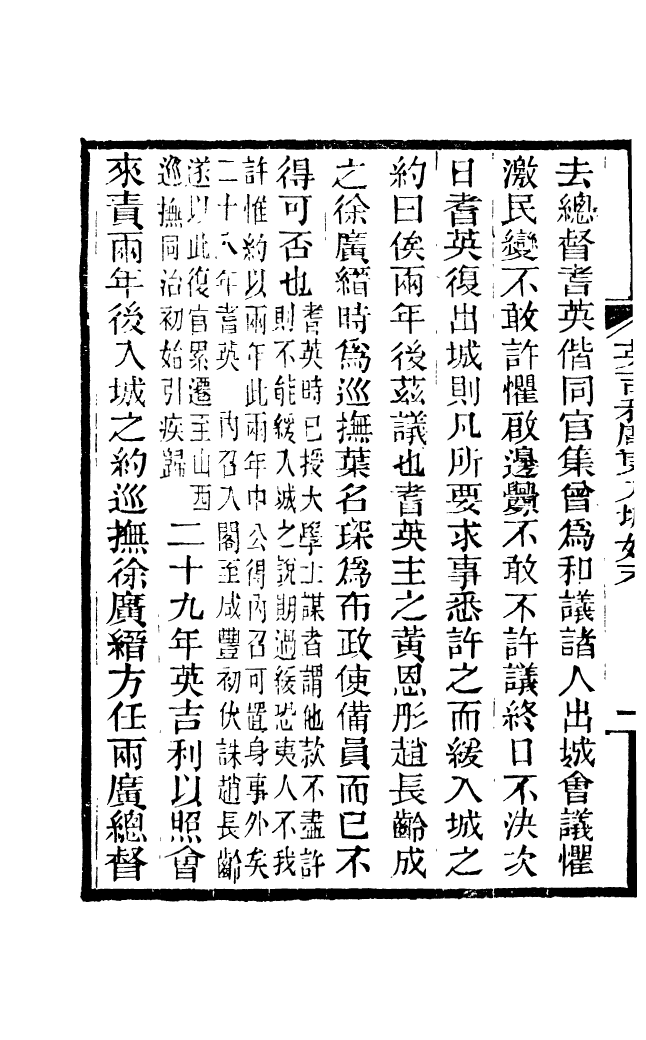 英吉利廣東入城始末 一
去總督耆英偕同官集曾爲和議諸人出城會議懼
激民變不敢許懼啟邊釁不敢不許議終日不決次
日耆英復出城則凡所要求事悉許之而緩入城之
約曰俟兩年後茲議也耆英主之黃恩彤趙長齡成
之徐廣縉時爲巡撫葉名琛爲布政使備員而已不
得可否也
耆英時已授大學士謀者謂他款不盡許
則不能緩入城之說期過緩恐夷人不我
許惟約以兩年此兩年中公得內召可置身事外矣
二十八年耆英 內召入閣至咸豐初伏誅趙長齡
遂以此復官累遷至山西
巡撫同治初始引疾歸
二十九年英吉利以照會
來責兩年後入城之約巡撫徐廣縉方任兩廣總督